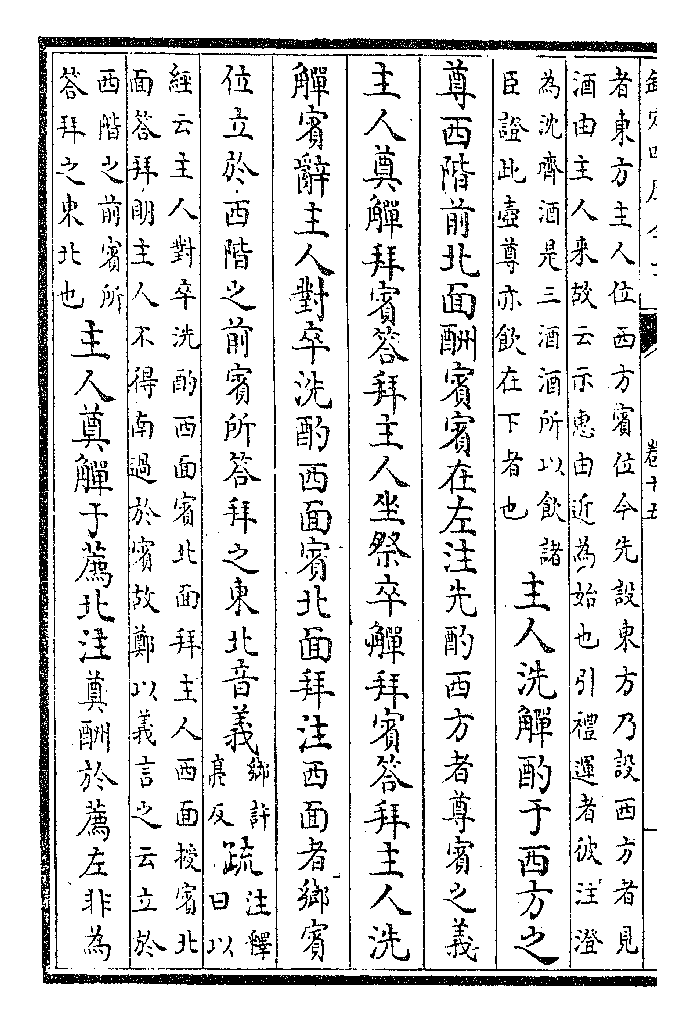 欽定四庫全書 卷十五
者東方主人位西方賓位今先設東方乃設西方者見
酒由主人来故云示惠由近為始也引禮運者彼注澄
為沈齊酒是三酒酒所以飲諸
臣證此壺尊亦飲在下者也
主人洗觶酌于西方之
尊西階前北面酬賓賓在左注先酌西方者尊賓之義
主人奠觶拜賓答拜主人坐祭卒觶拜賓答拜主人洗
觶賓辭主人對卒洗酌西面賓北面拜注西面者鄉賓
位立於西階之前賓所答拜之東北音義
鄉許
亮反
疏
注釋
曰以
經云主人對卒洗酌西面賓北面拜主人西面授賓北
面答拜明主人不得南過於賓故鄭以義言之云立於
西階之前賓所
答拜之東北也
主人奠觶于薦北注奠酬於薦左非為